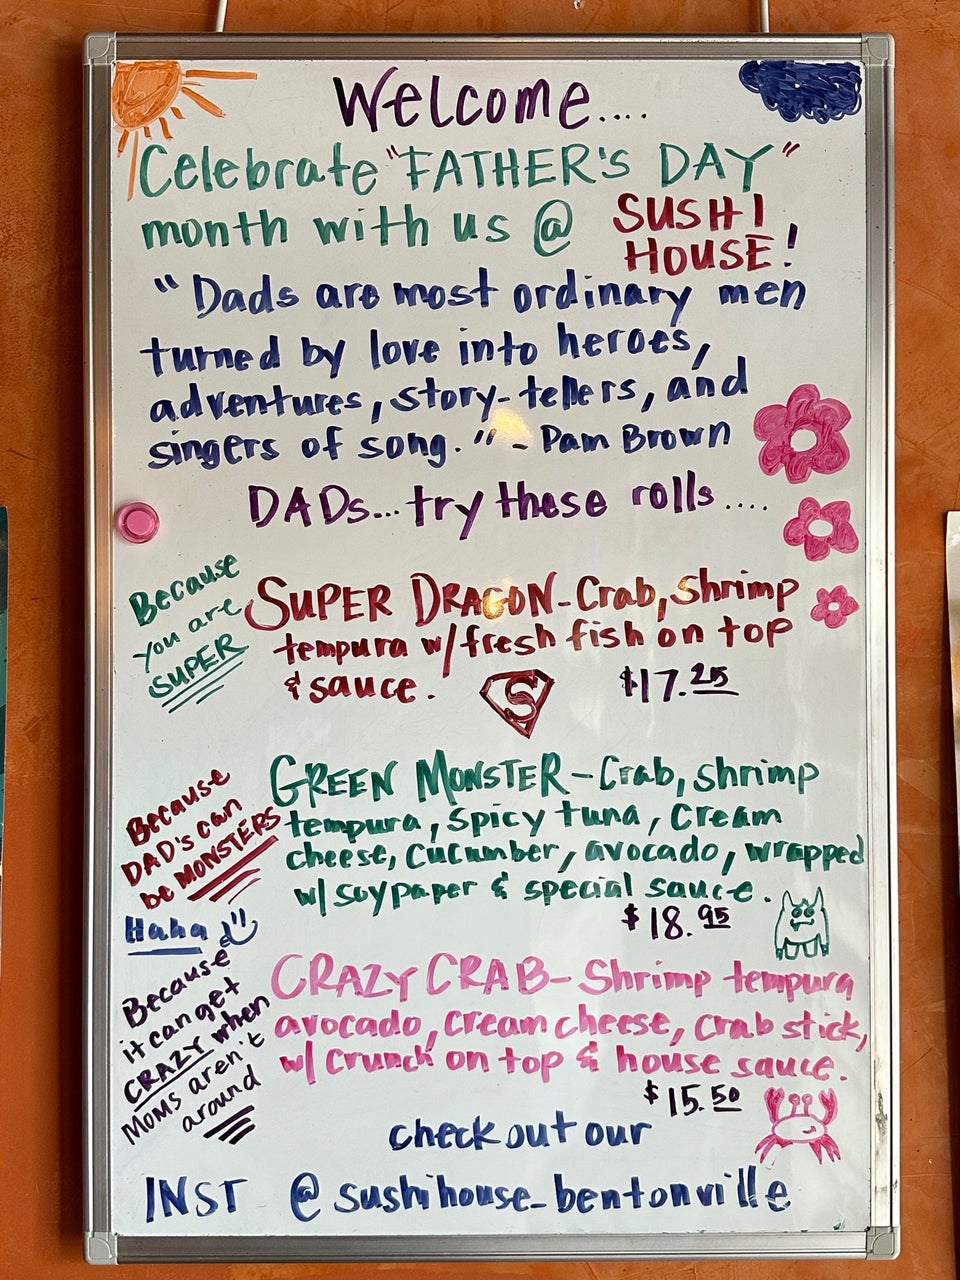 Welcome....
Celebrate "FATHER'S DAY"
month with us @ SUSHI
HOUSE!
"Dads are most ordinary men
turned by love into heroes,
adventures, story-tellers, and
singers of song." - Pam Brown
DADs...try these rolls....
Because
you are
SUPER
SUPER DRAGON-Crab, Shrimp
tempura w/fresh fish on top
& sauce.
S
$17.25
Because
DAD's can
be MONSTERS
Haha
GREEN MONSTER-Crab, shrimp
tempura, spicy tuna, cream
cheese, cucumber, avocado, wrapped
w/soypaper & special sauce.
$18.95
Because
it can get
CRAZY when
Moms aren't
around
CRAZY CRAB- Shrimp tempura
avocado, cream cheese, crab stick,
w/ crunch on top & house sauce.
$15.50
check out our
INST @sushihouse_bentonville